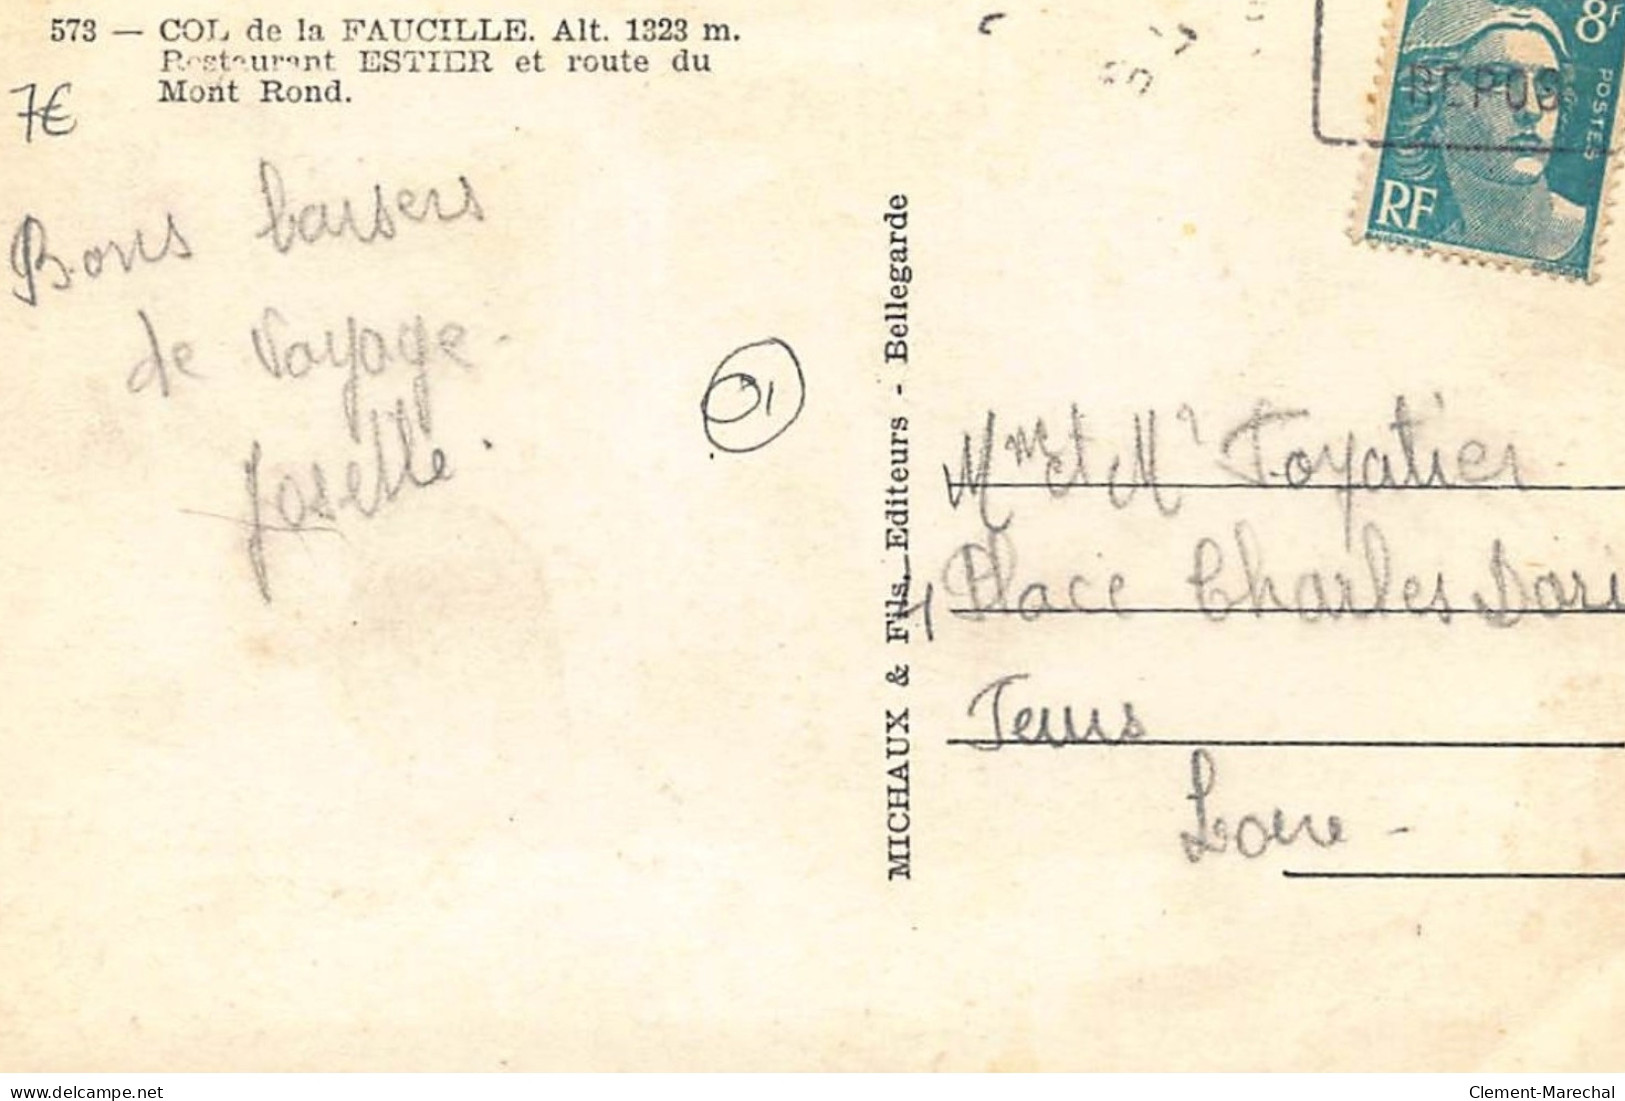 573 — COL de la FAUCILLE. Alt. 1323 m.
Restaurant ESTIER et route du
Mont Rond.
7€
Bons baisers
de Voyage.
Josette.
01
MICHAUX & Fils, Editeurs - Bellegarde
8F
POSTES
RF
REPOS
Mme et Mr Foyatier
Place Charles Dori
Feurs
Loire -
delcampe.net
Clement-Marechal